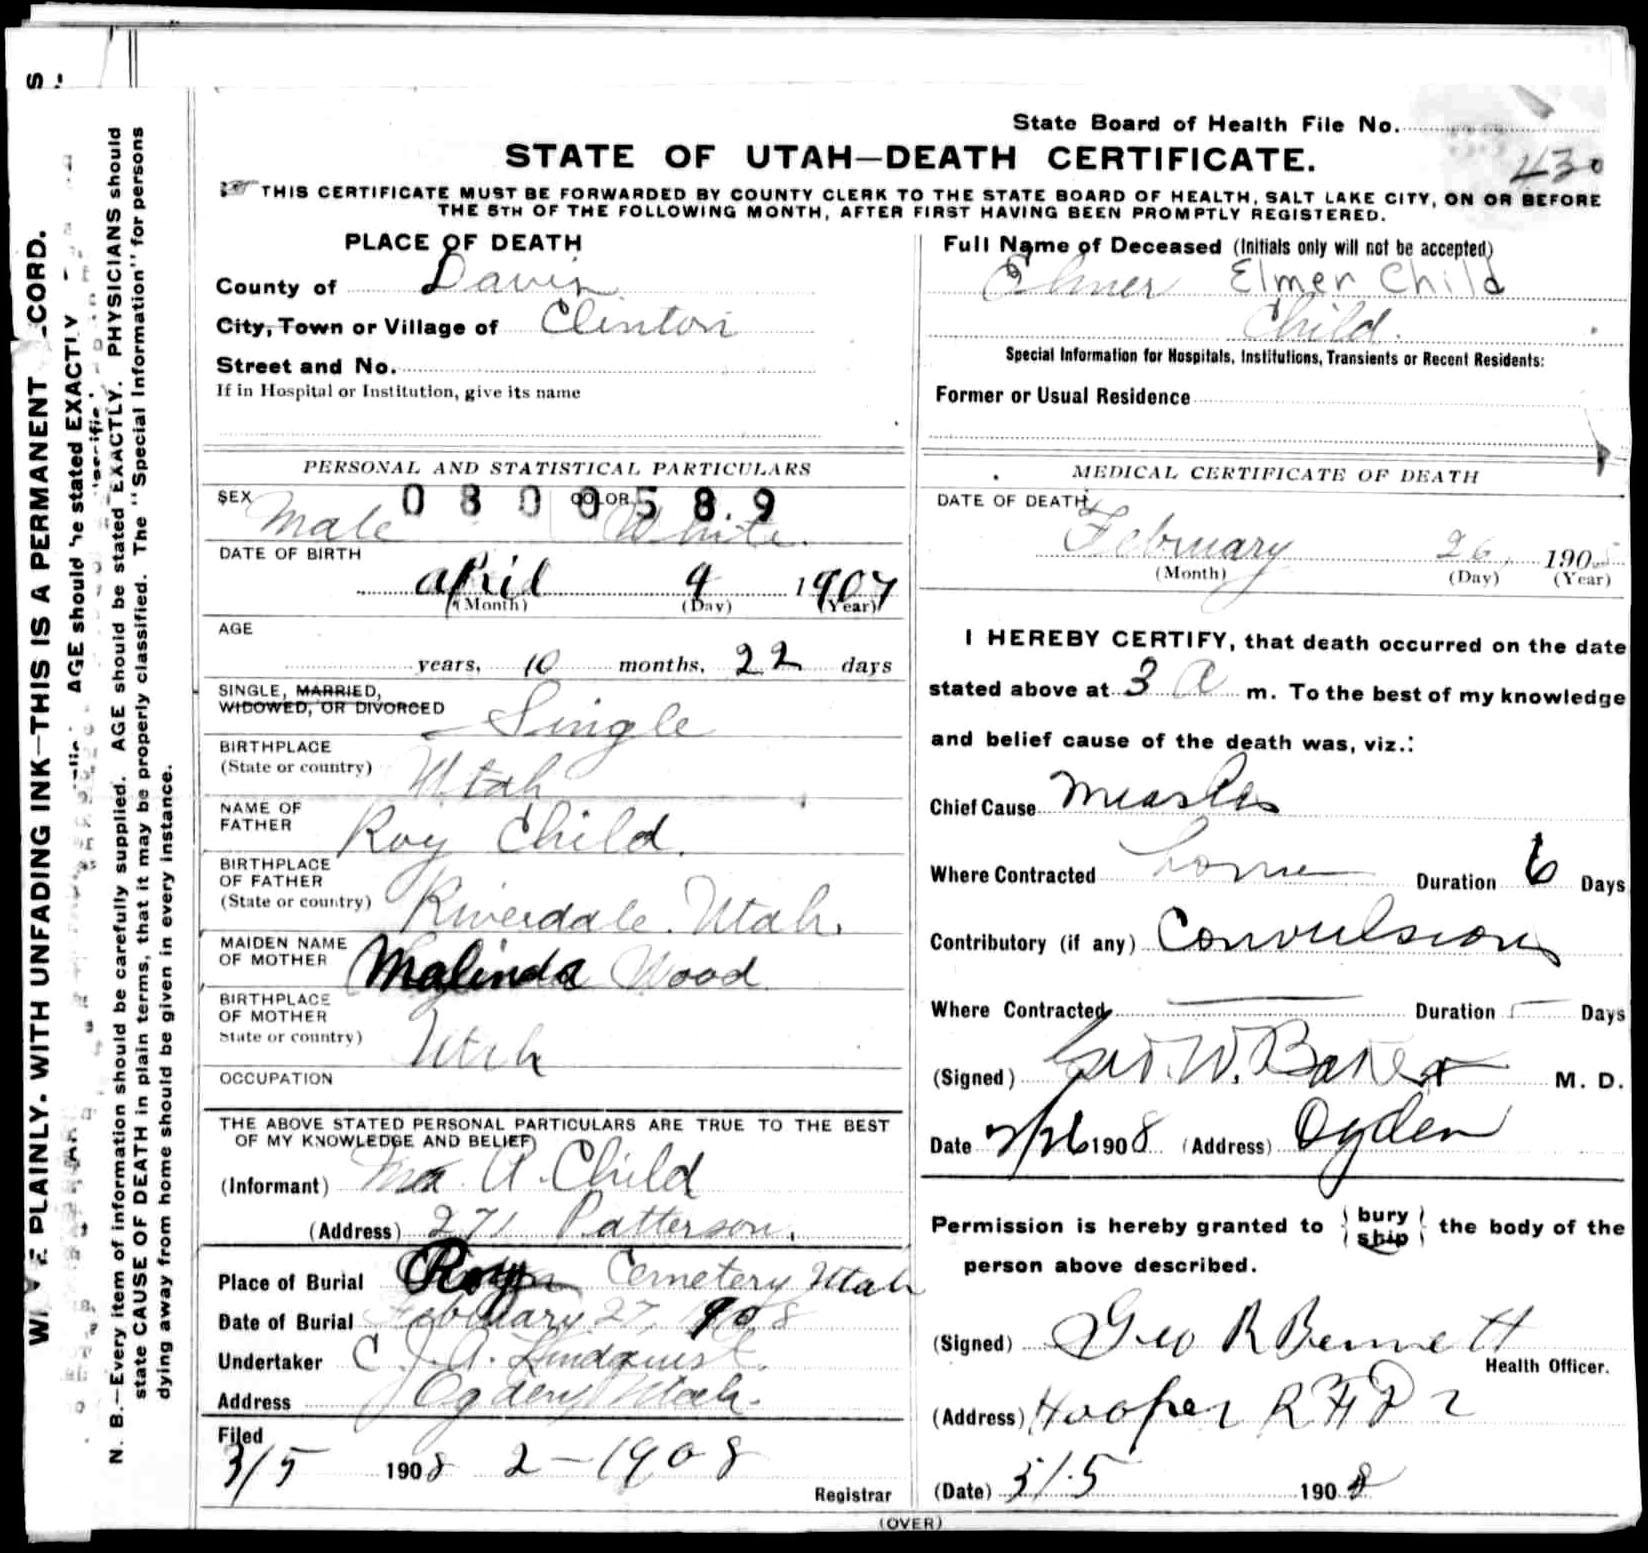 State Board of Health File No.
430
STATE OF UTAH—DEATH CERTIFICATE.
THIS CERTIFICATE MUST BE FORWARDED BY COUNTY CLERK TO THE STATE BOARD OF HEALTH, SALT LAKE CITY, ON OR BEFORE
THE 5TH OF THE FOLLOWING MONTH, AFTER FIRST HAVING BEEN PROMPTLY REGISTERED.
PLACE OF DEATH
County of Davis
City, Town or Village of Clinton
Street and No.
If in Hospital or Institution, give its name
PERSONAL AND STATISTICAL PARTICULARS
SEX Male COLOR White.
0800589
DATE OF BIRTH
April 9 1907
(Month) (Day) (Year)
AGE
years, 10 months, 22 days
SINGLE, MARRIED,
WIDOWED, OR DIVORCED Single
BIRTHPLACE
(State or country) Utah
NAME OF
FATHER Roy Child.
BIRTHPLACE
OF FATHER
(State or country) Riverdale. Utah.
MAIDEN NAME
OF MOTHER Malinda Wood
BIRTHPLACE
OF MOTHER
State or country) Utah
OCCUPATION
THE ABOVE STATED PERSONAL PARTICULARS ARE TRUE TO THE BEST
OF MY KNOWLEDGE AND BELIEF)
(Informant) A. Child
(Address) 271 Patterson.
Place of Burial Roy Cemetery Utah
Date of Burial February 27, 1908
Undertaker C J. A. Lindquist.
Address Ogden, Utah.
Filed
3/5 1908 2-1908
Registrar
Full Name of Deceased (Initials only will not be accepted)
Elmer Elmer Child
Child.
Special Information for Hospitals, Institutions, Transients or Recent Residents:
Former or Usual Residence
MEDICAL CERTIFICATE OF DEATH
DATE OF DEATH
February 26, 190
(Month) (Day) (Year)
I HEREBY CERTIFY, that death occurred on the date
stated above at 3 a m. To the best of my knowledge
and belief cause of the death was, viz.:
Chief Cause Measles
Where Contracted home Duration 6 Days
Contributory (if any) Convulsions
Where Contracted Duration Days
(Signed) Geo. W. Baker M. D.
Date 2/26 1908 (Address) Ogden
Permission is hereby granted to bury ship the body of the
person above described.
(Signed) Geo R Bennett
Health Officer.
(Address) Hooper R F D 2
(Date) 3/5 1908
(OVER)
PLAINLY. WITH UNFADING INK—THIS IS A PERMANENT CORD.
AGE should be stated EXACTLY
N. B.—Every item of information should be carefully supplied. AGE should be stated EXACTLY. PHYSICIANS should
state CAUSE OF DEATH in plain terms, that it may be properly classified. The "Special Information" for persons
dying away from home should be given in every instance.